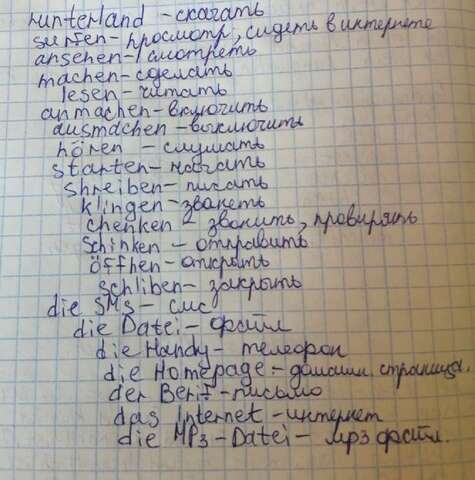 runterland - скачать
surfen - просмотр, сидеть в интернете
ansehen - смотреть
machen - сделать
lesen - читать
anmachen - включить
ausmachen - выключить
hören - слушать
starten - начать
shreiben - писать
klingen - званеть
chenken - званить, провирять
schinken - отправить
öffhen - открыть
schliben - закрыть
die SMS - смс
die Datei - файл
die Handy - телефон
die Homepage - домашн. страница.
der Berif - письмо
das Internet - интернет
die MP3 - Datei - мр3 файл.